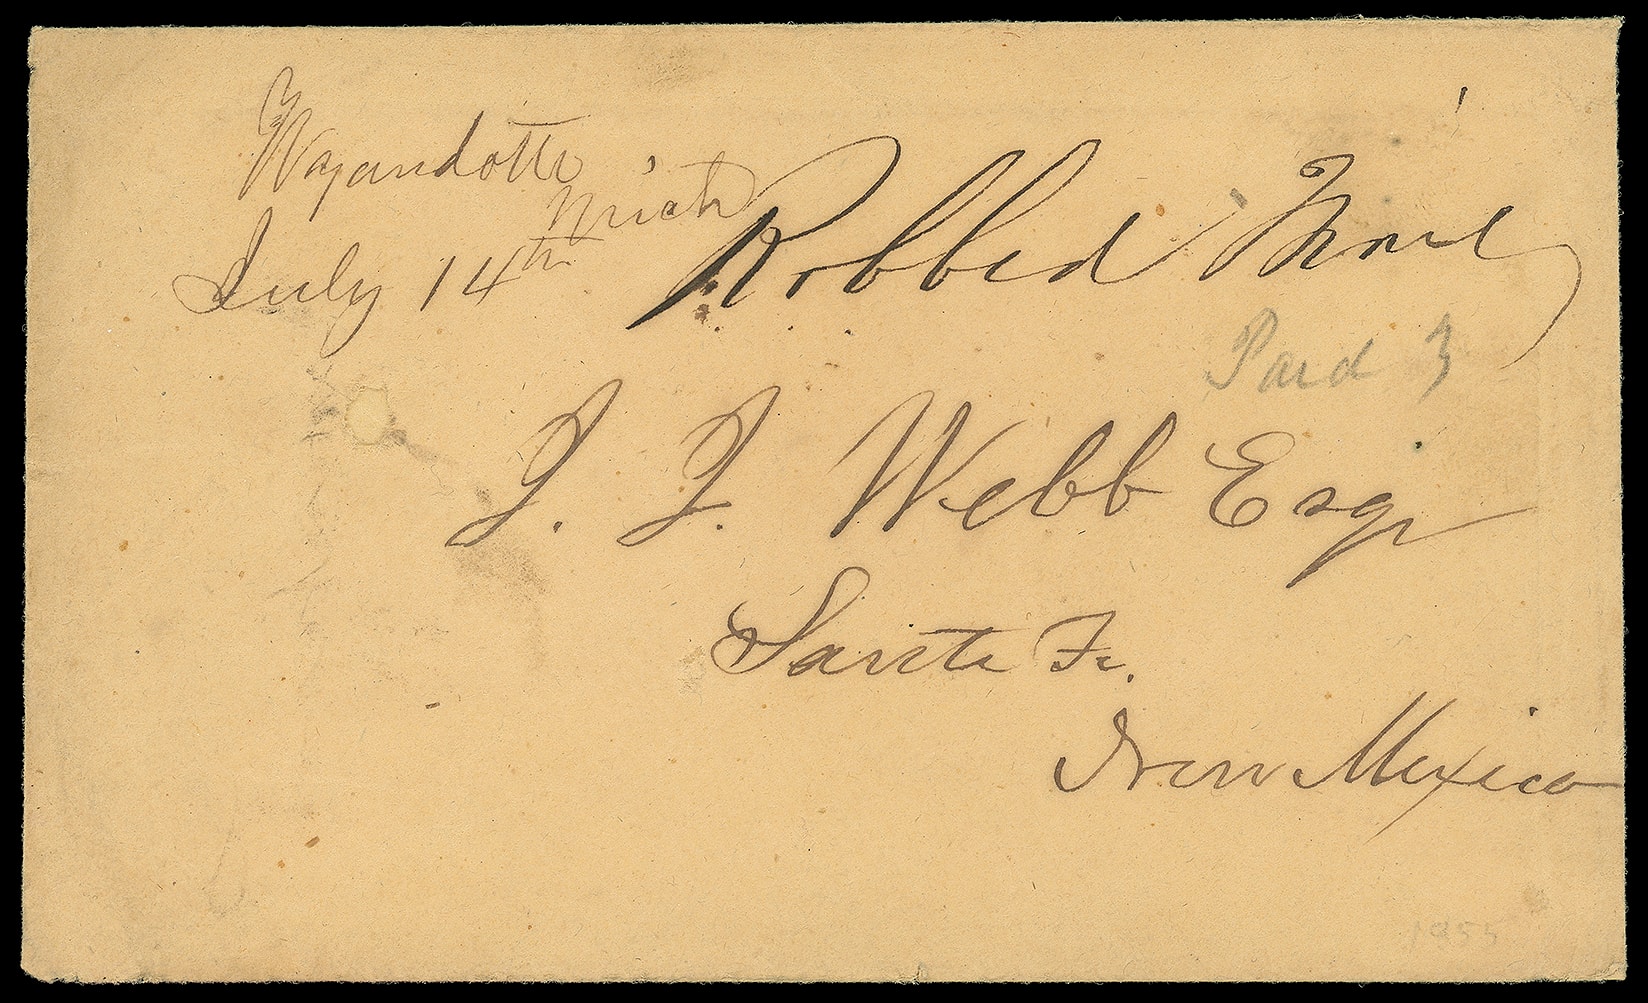 Wyandotte
Mich
July 14th
Robbed Mail
Paid 3
J. J. Webb Esqr
Santa Fe.
New Mexico
1855